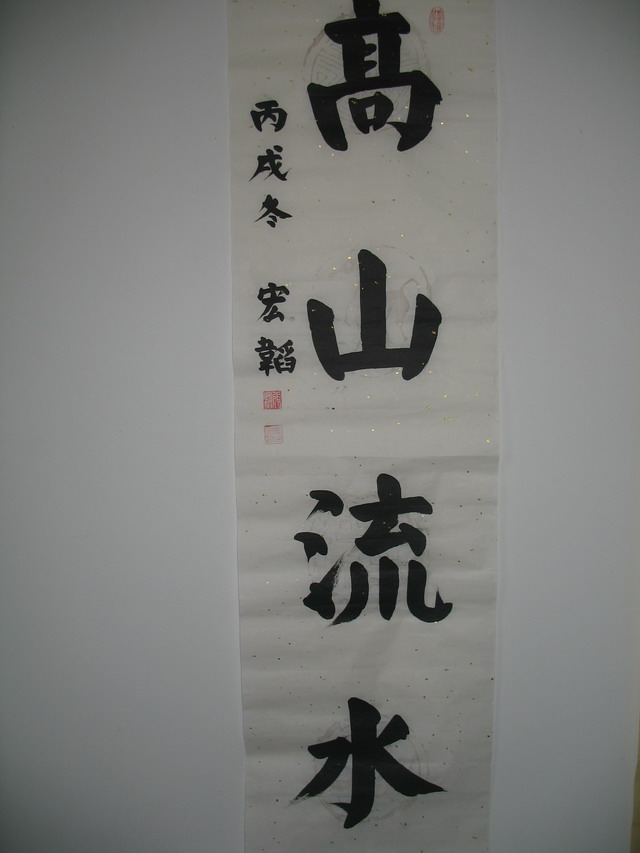 髙山流水
丙戌冬 宏韜